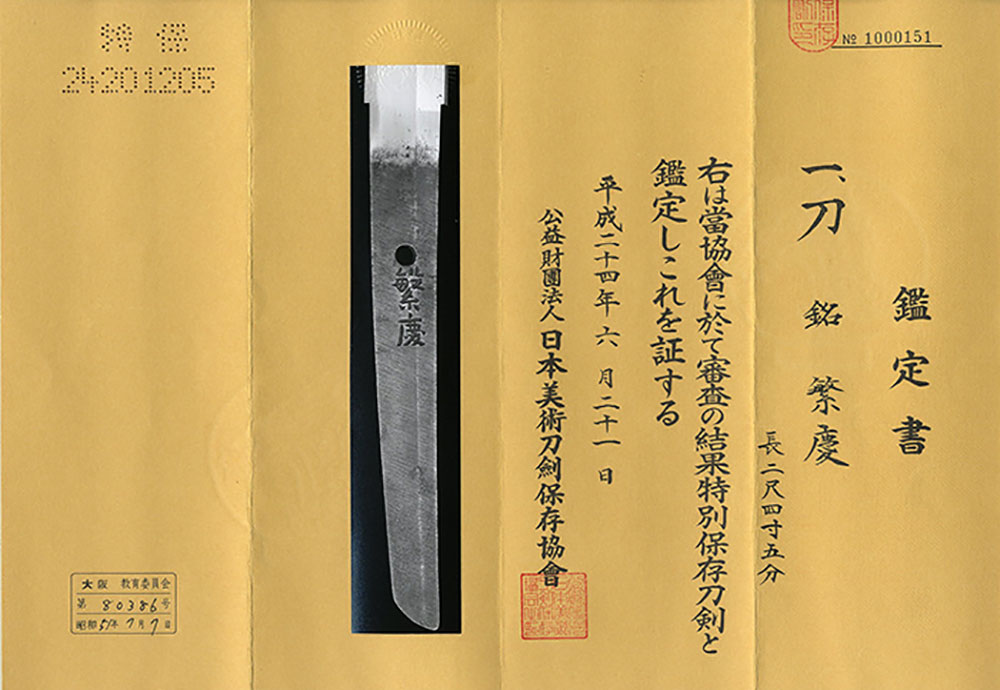 № 1000151
鑑定書
一、刀 銘 繁慶
長二尺四寸五分
右は當協會に於て審査の結果特別保存刀剣と
鑑定しこれを証する
平成二十四年六月二十一日
公益財團法人 日本美術刀劍保存協會
繁慶
特保
24201205
大阪 教育委員会
第 80386 号
昭和51年7月7日